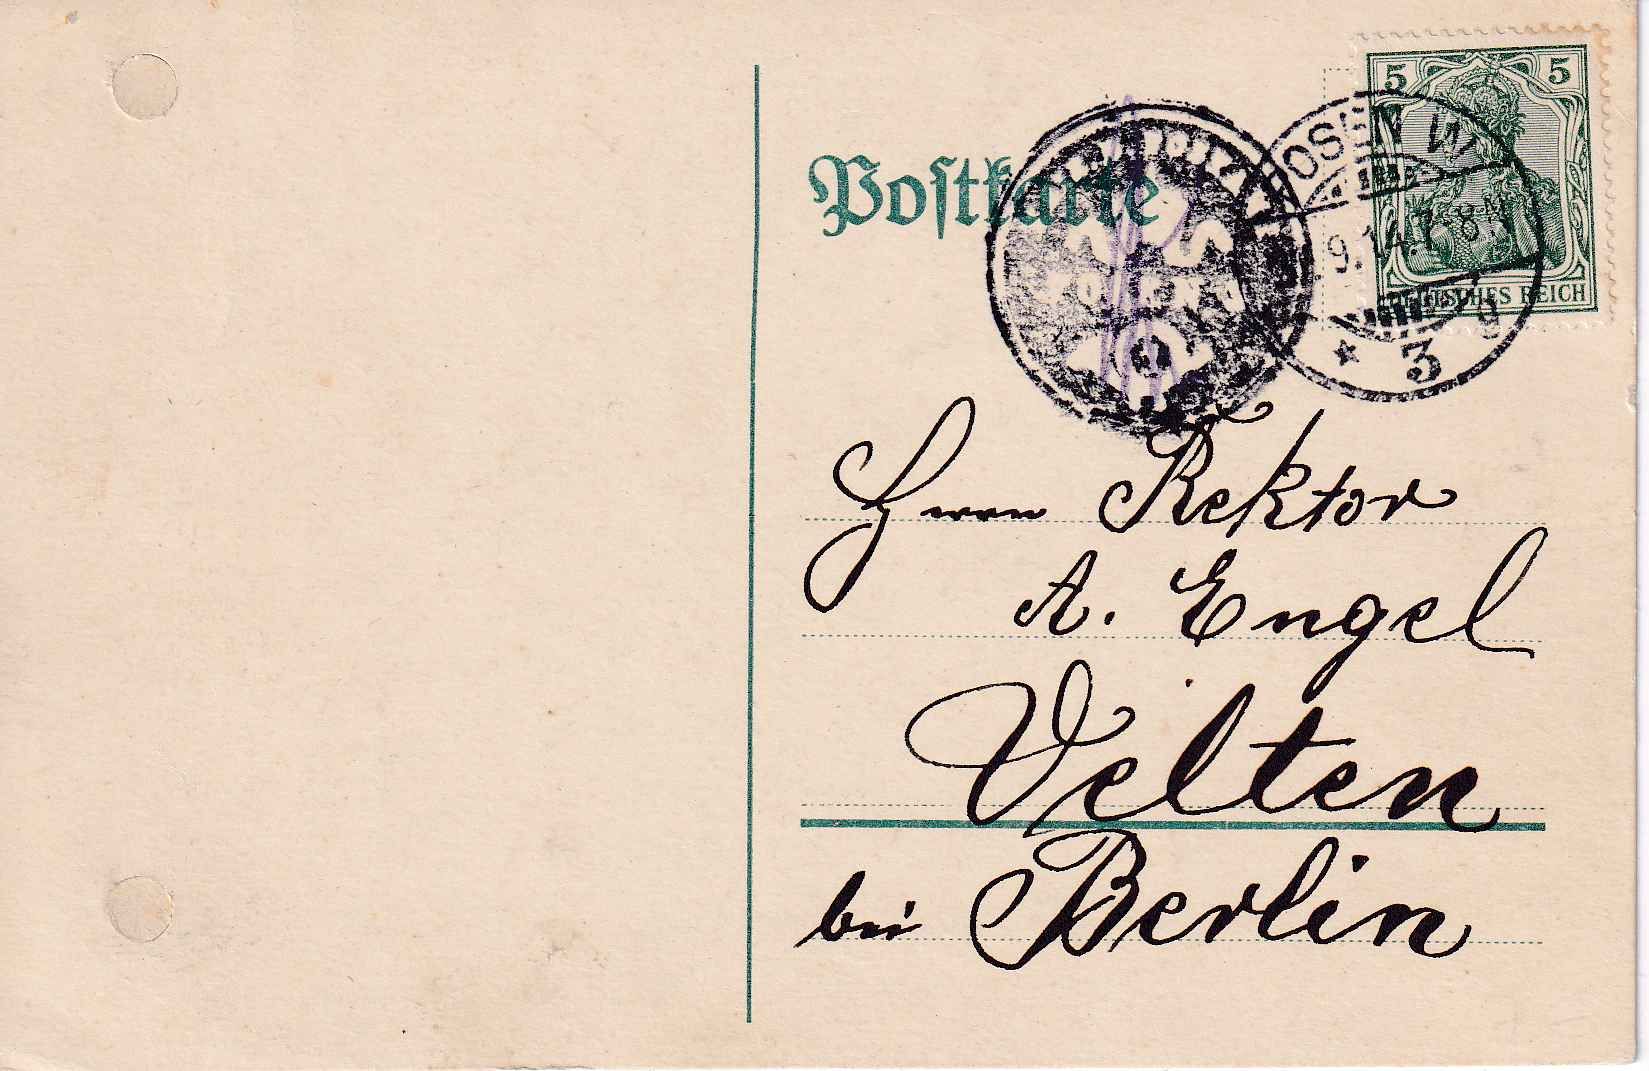 Postkarte
5 5
DEUTSCHES REICH
POSEN W
9.14.7-8N
* 3 g
Herrn Rektor
A. Engel
Velten
bei Berlin